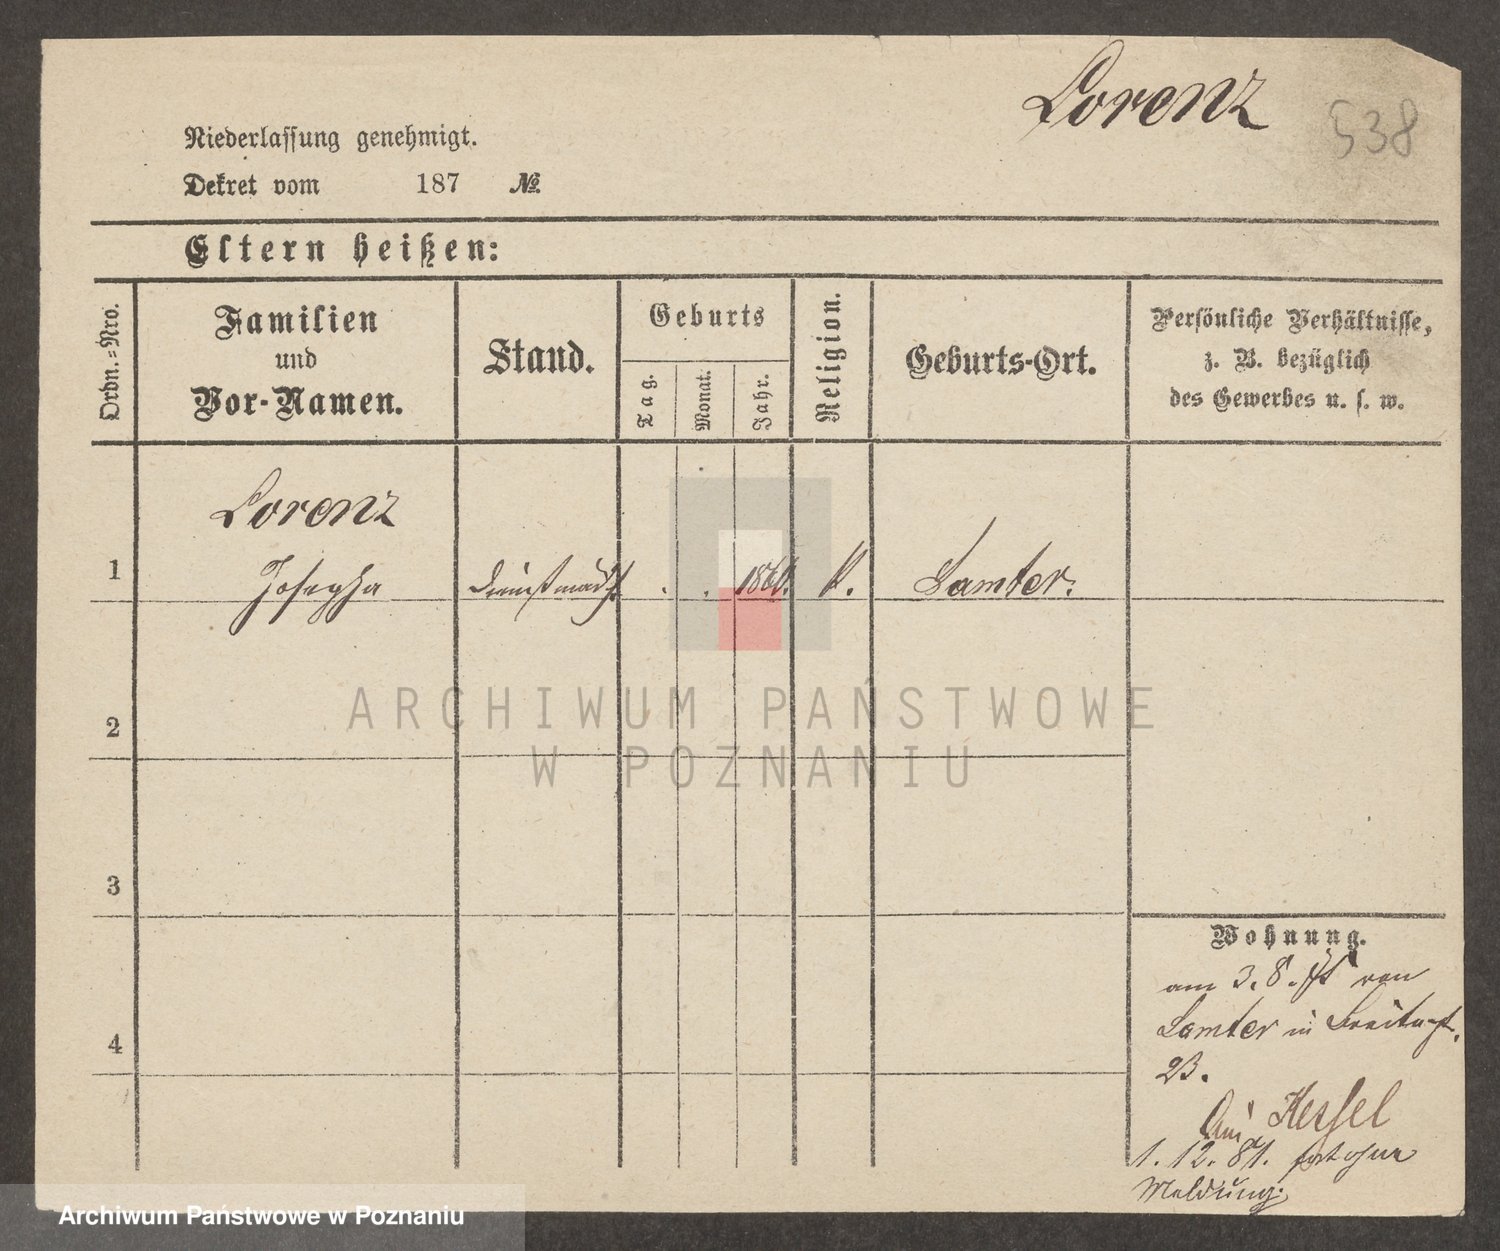 Lorenz
538
Niederlassung genehmigt.
Dekret vom 187 №
Eltern heißen:
Ordn.=Nro.
Familien
und
Vor-Namen.
Stand.
Geburts
Tag.
Monat.
Jahr.
Religion.
Geburts-Ort.
Persönliche Verhältnisse,
z. B. bezüglich
des Gewerbes u. s. w.
Lorenz
1 Josepha Dienstmädch. . . K. Samter.
2
3
4
Wohnung.
am 3. 8. von
Samter in Breitestr.
23.
bei Kessel
1. 12. 81. fort ohne
Meldung.
ARCHIWUM PAŃSTWOWE
W POZNANIU
Archiwum Państwowe w Poznaniu